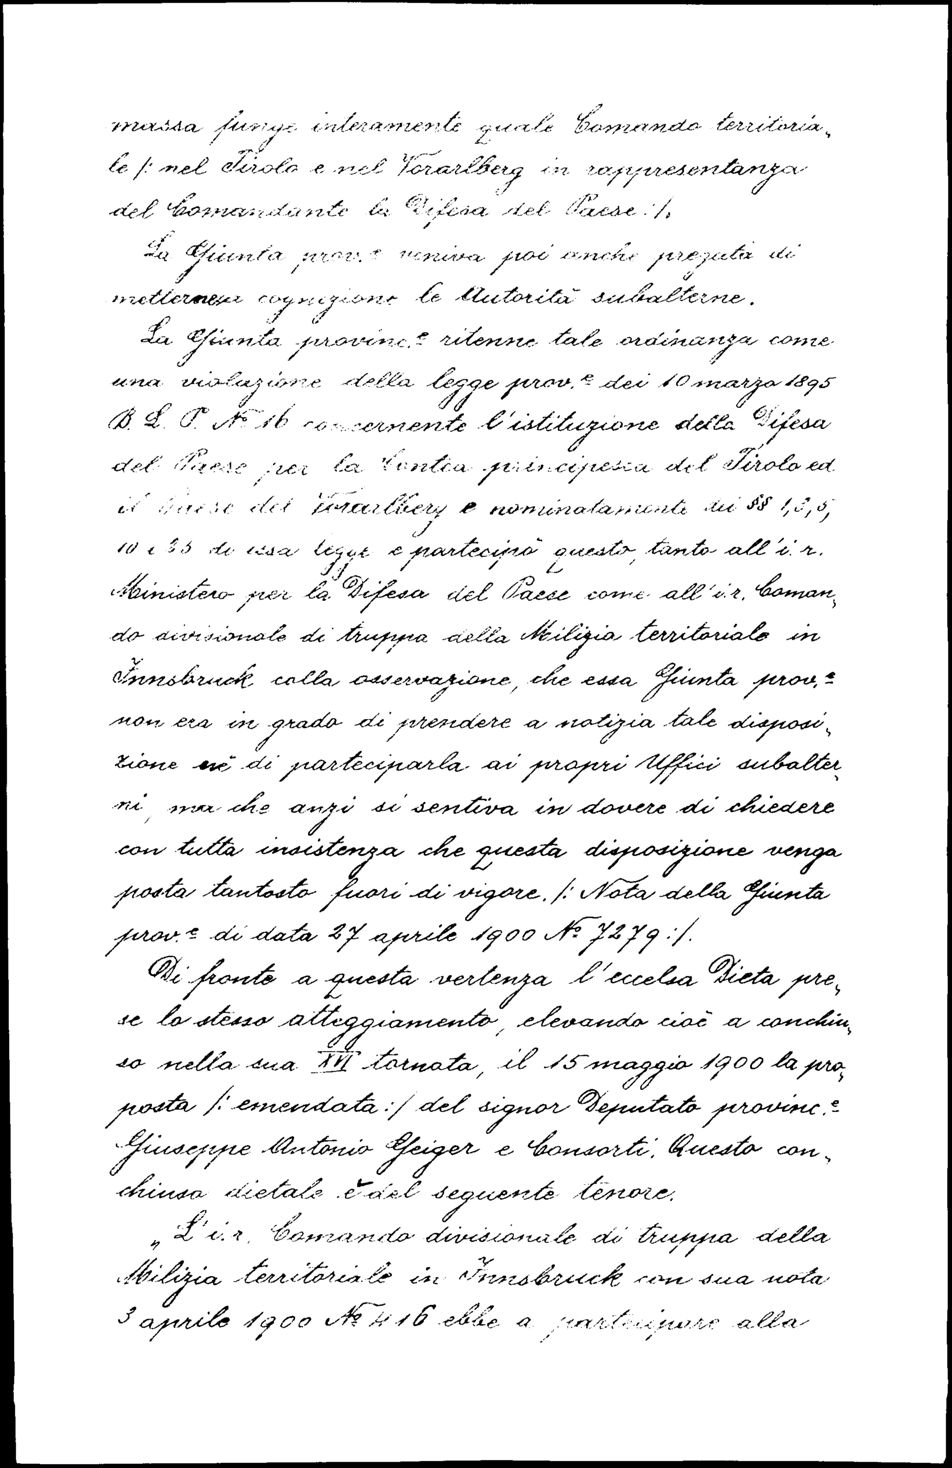 massa funge interamente quale Comando territoria„
le /: nel Tirolo e nel Vorarlberg in rappresentanza
del Comandante la Difesa del Paese :/.
La Giunta prov.e veniva poi anche pregata di
metterne a cognizione le Autorità subalterne.
La Giunta provinc.e ritenne tale ordinanza come
una violazione della legge prov.e dei 10 marzo 1895
B. L. P. No 16 concernente l'istituzione della Difesa
del Paese per la Contea principesca del Tirolo ed
il Paese del Vorarlberg e nominatamente dei §§ 1, 3, 5,
10 e 25 di essa legge e partecipò questo, tanto all'i. r.
Ministero per la Difesa del Paese come all'i. r. Coman„
do divisionale di truppa della Milizia territoriale in
Innsbruck colla osservazione, che essa Giunta prov.e
non era in grado di prendere a notizia tale disposi„
zione nè di parteciparla ai propri Uffici subalter„
ni, ma che anzi si sentiva in dovere di chiedere
con tutta insistenza che questa disposizione venga
posta tantosto fuori di vigore. /: Nota della Giunta
prov.e di data 27 aprile 1900 No 7279 :/.
Di fronte a questa vertenza l'eccelsa Dieta pre„
se lo stesso atteggiamento, elevando cioè a conchiu„
so nella sua XVI tornata, il 15 maggio 1900 la pro„
posta /: emendata :/ del signor Deputato provinc.e
Giuseppe Antonio Geiger e Consorti. Questo con„
chiuso dietale è del seguente tenore.
„L' i. r. Comando divisionale di truppa della
Milizia territoriale in Innsbruck con sua nota
3 aprile 1900 No 416 ebbe a partecipare alla